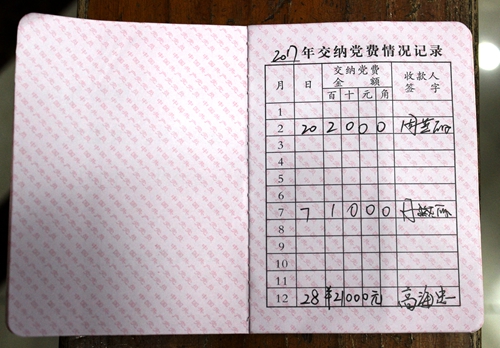 2017年交纳党费情况记录
月 日 交纳党费金额 收款人签字
百 十 元 角
1
2 20 2 0 0 0
3
4
5
6
7 7 1 0 0 0
8
9
10
11
12 28 ¥21000元 高海忠